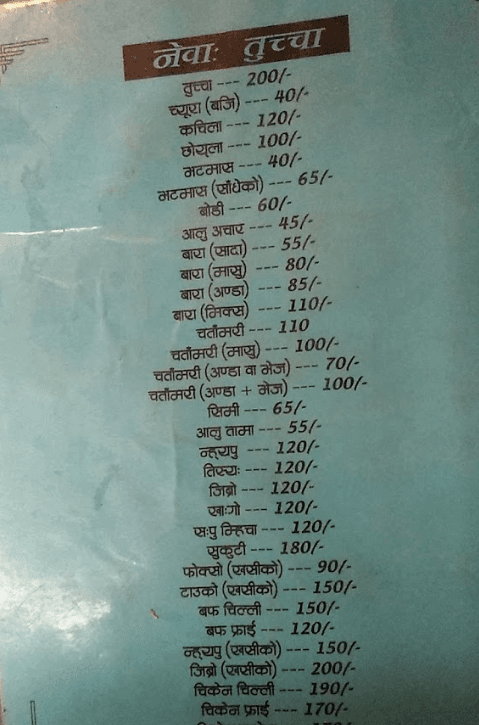 नेवाः तुच्चा
तुच्चा --- 200/-
च्यूरा (बजि) --- 40/-
कचिला --- 120/-
छोएला --- 100/-
भटमास --- 40/-
भटमास (साँधेको) --- 65/-
बोडी --- 60/-
आलु अचार --- 45/-
बारा (सादा) --- 55/-
बारा (मासु) --- 80/-
बारा (अण्डा) --- 85/-
बारा (मिक्स) --- 110/-
चताँमरी --- 110
चताँमरी (मासु) --- 100/-
चताँमरी (अण्डा वा भेज) --- 70/-
चताँमरी (अण्डा + भेज) --- 100/-
सिमी --- 65/-
आलु तामा --- 55/-
न्ह्यपु --- 120/-
तिस्यः --- 120/-
जिब्रो --- 120/-
खाःगो --- 120/-
सःपु म्हिचा --- 120/-
सुकुटी --- 180/-
फोक्सो (खसीको) --- 90/-
टाउको (खसीको) --- 150/-
बफ चिल्ली --- 150/-
बफ फ्राई --- 120/-
न्ह्यपु (खसीको) --- 150/-
जिब्रो (खसीको) --- 200/-
चिकेन चिल्ली --- 190/-
चिकेन फ्राई --- 170/-